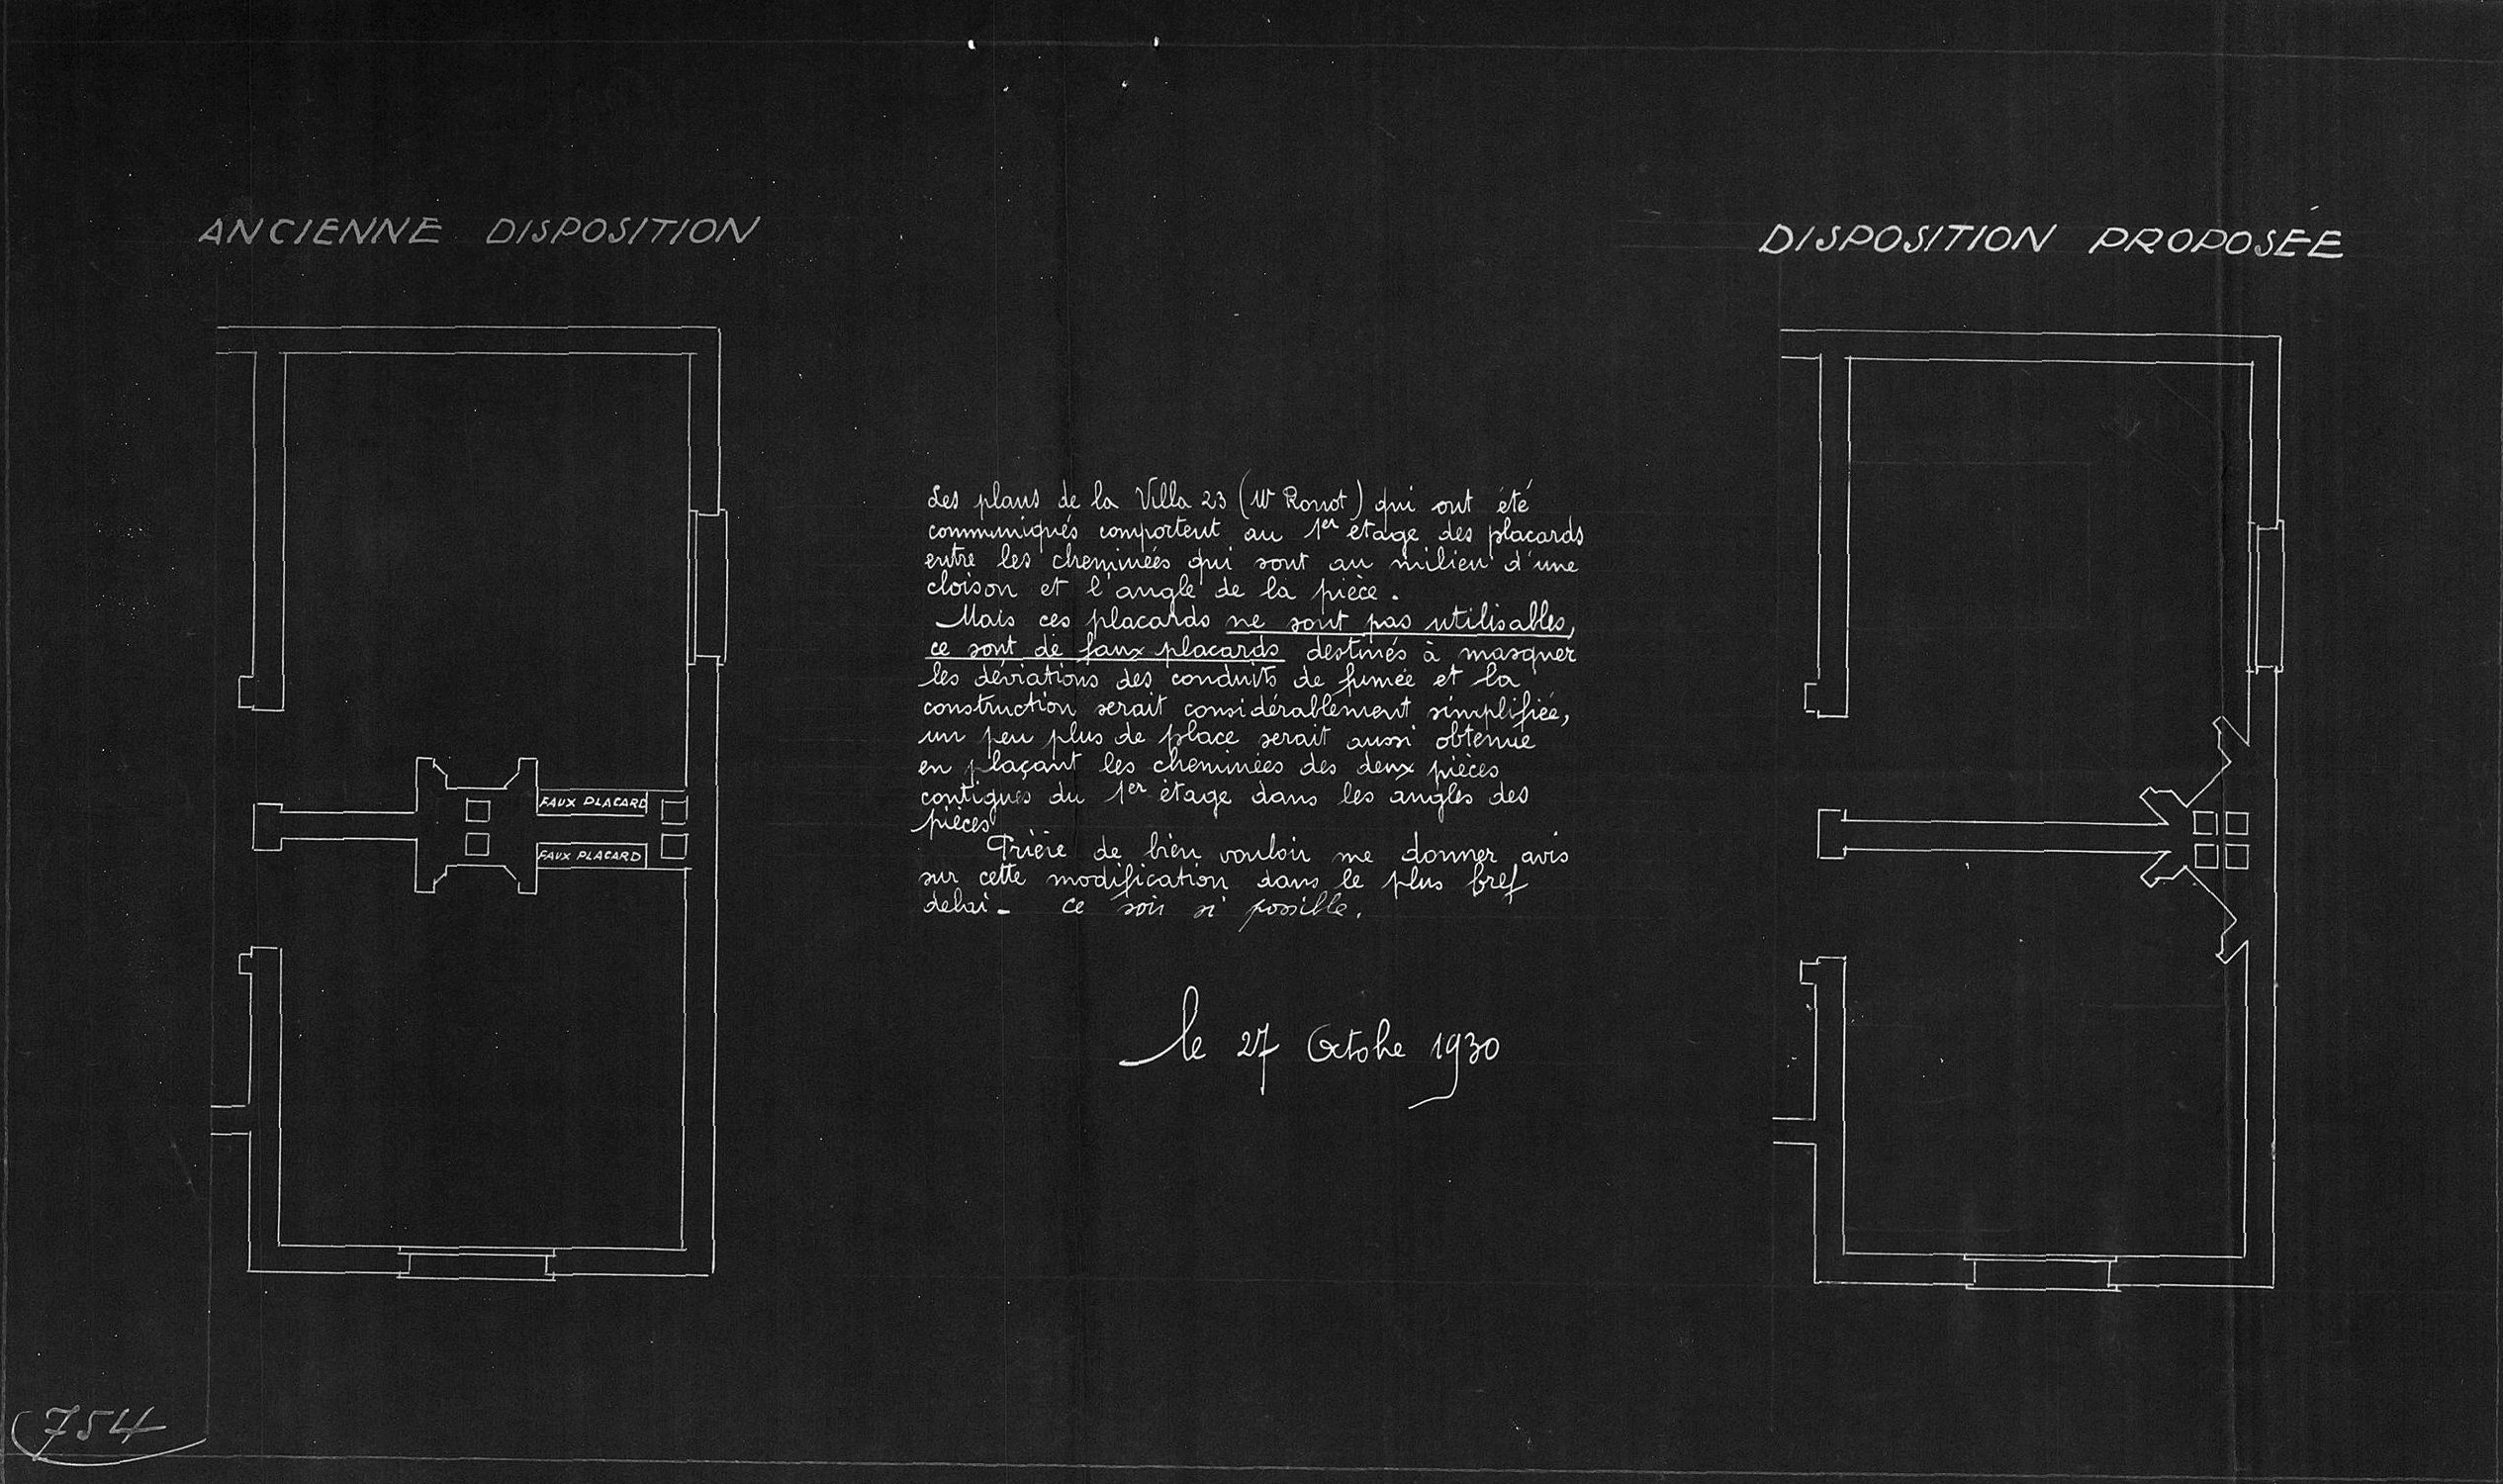 ANCIENNE DISPOSITION
DISPOSITION PROPOSÉE
Les plans de la Villa 23 (Mr Ronot) qui ont été
communiqués comportent au 1er étage des placards
entre les cheminées qui sont au milieu d'une
cloison et l'angle de la pièce.
Mais ces placards ne sont pas utilisables,
ce sont de faux placards destinés à masquer
les déviations des conduits de fumée et la
construction serait considérablement simplifiée,
un peu plus de place serait aussi obtenue
en plaçant les cheminées des deux pièces
contigues du 1er étage dans les angles des
pièces
Prière de bien vouloir me donner avis
sur cette modification dans le plus bref
delai - ce soir si possible.
FAUX PLACARD
FAUX PLACARD
le 27 Octobre 1930
754